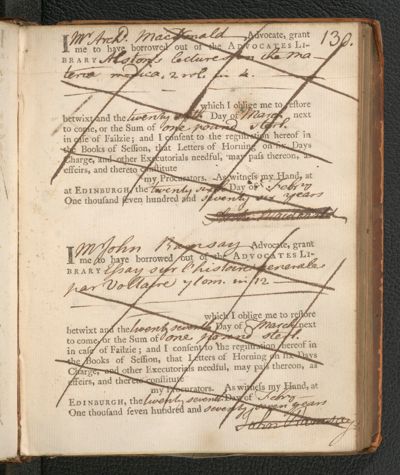 130.
I Mr Archd. Macdonald Advocate, grant
me to have borrowed out of the ADVOCATES LI-
BRARY Alston's lectures on the ma-
teria medica, 2 vol. in 4.
which I oblige me to reſtore
betwixt and the twenty sixth Day of March next
to come, or the Sum of one pound sterl.
in caſe of Failzie; and I conſent to the regiſtration hereof in
the Books of Seſſion, that Letters of Horning on ſix Days
Charge, and other Executorials needful, may paſs thereon, as
effeirs, and thereto conſtitute
my Procurators. As witneſs my Hand, at
at EDINBURGH, the twenty sixth Day of Febry
One thouſand ſeven hundred and seventy six years
I Mr John Ramsay Advocate, grant
me to have borrowed out of the ADVOCATES LI-
BRARY Essay sur l'histoire generale
par Voltaire 7 tom. in 12
which I oblige me to reſtore
betwixt and the twenty seventh Day of March next
to come, or the Sum of one pound sterl.
in caſe of Failzie; and I conſent to the regiſtration hereof in
the Books of Seſſion, that Letters of Horning on ſix Days
Charge, and other Executorials needful, may paſs thereon, as
effeirs, and thereto conſtitute
my Procurators. As witneſs my Hand, at
EDINBURGH, the twenty seventh Day of Febry
One thouſand ſeven hundred and seventy years
John Ramsay